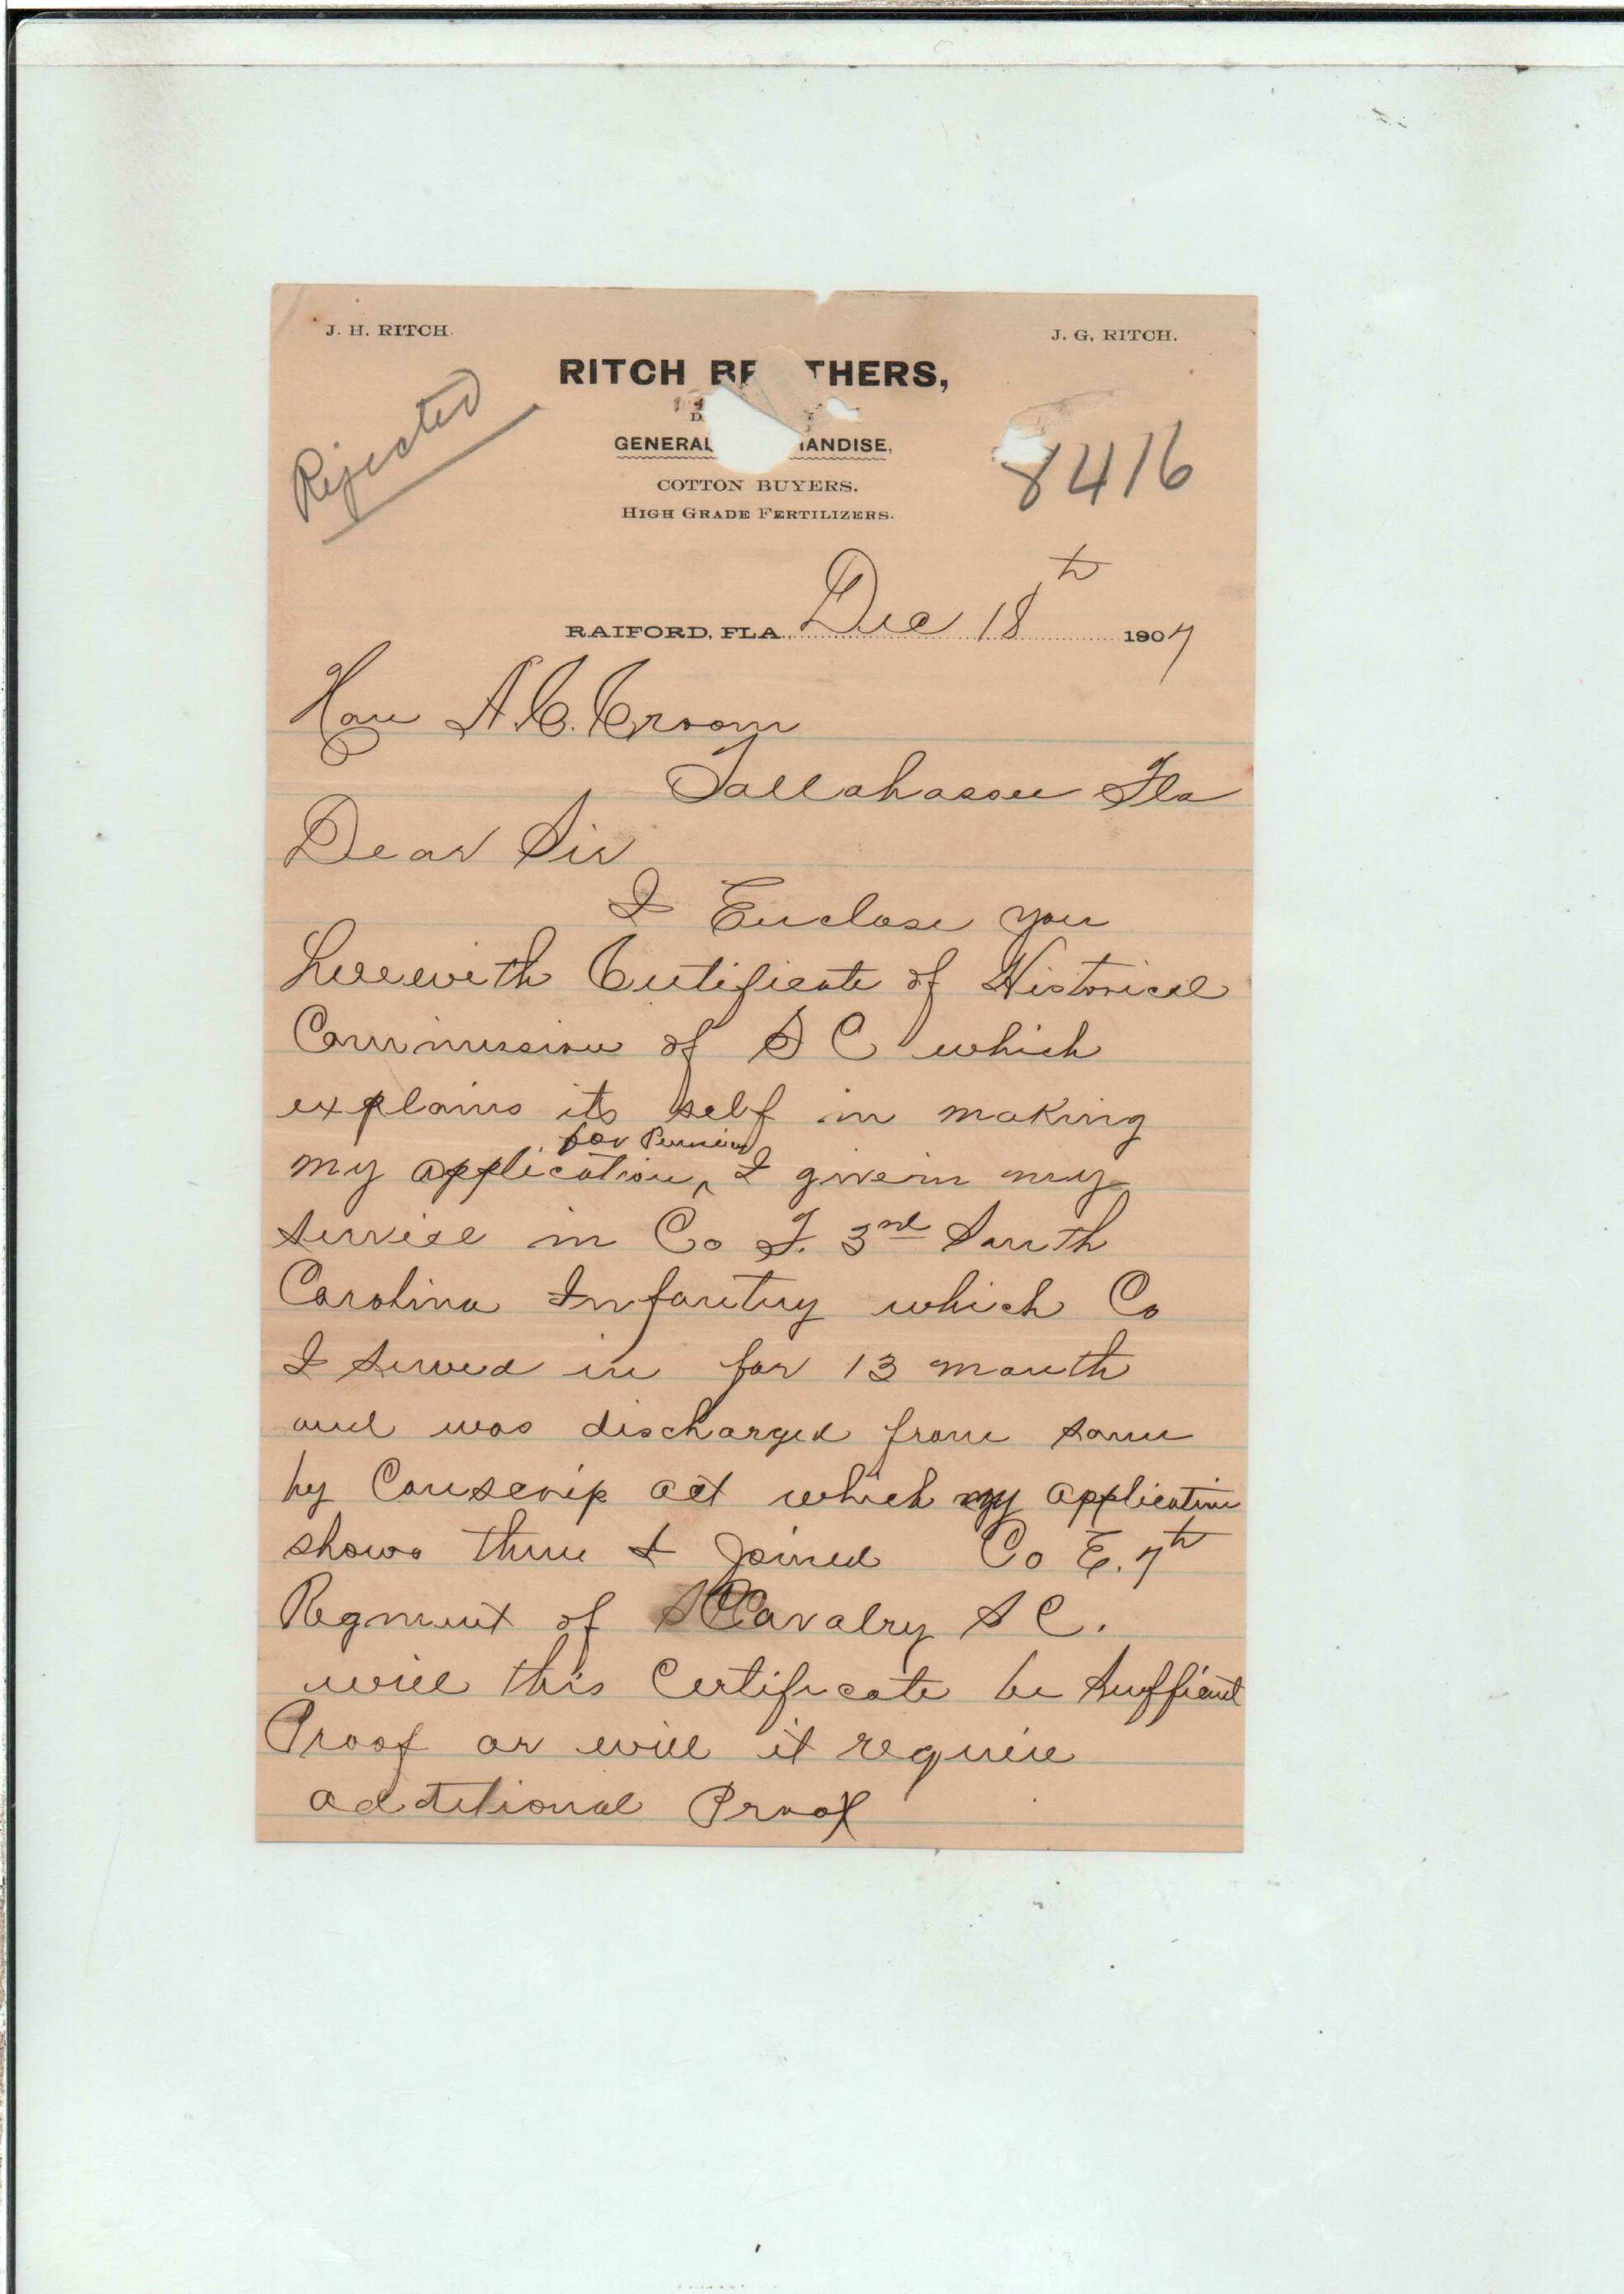 J. H. RITCH.
J. G. RITCH.
RITCH BR THERS,
D
GENERAL ANDISE,
COTTON BUYERS.
HIGH GRADE FERTILIZERS.
Rejected
8416
RAIFORD, FLA., Dec 18th 1907
Hon A. C. Croom
Tallahassee Fla
Dear Sir
I Enclose you
herewith Certificate of Historical
Commission of S C which
explains its self in making
my application for Pension I givein my
service in Co F. 3rd South
Carolina Infantry which Co
I served in for 13 month
and was discharged from same
by Conscrip act which my application
shows then I joined Co E. 7th
Regment of Cavalry S C.
will this Certificate be Suffient
Proof or will it require
additional Proof